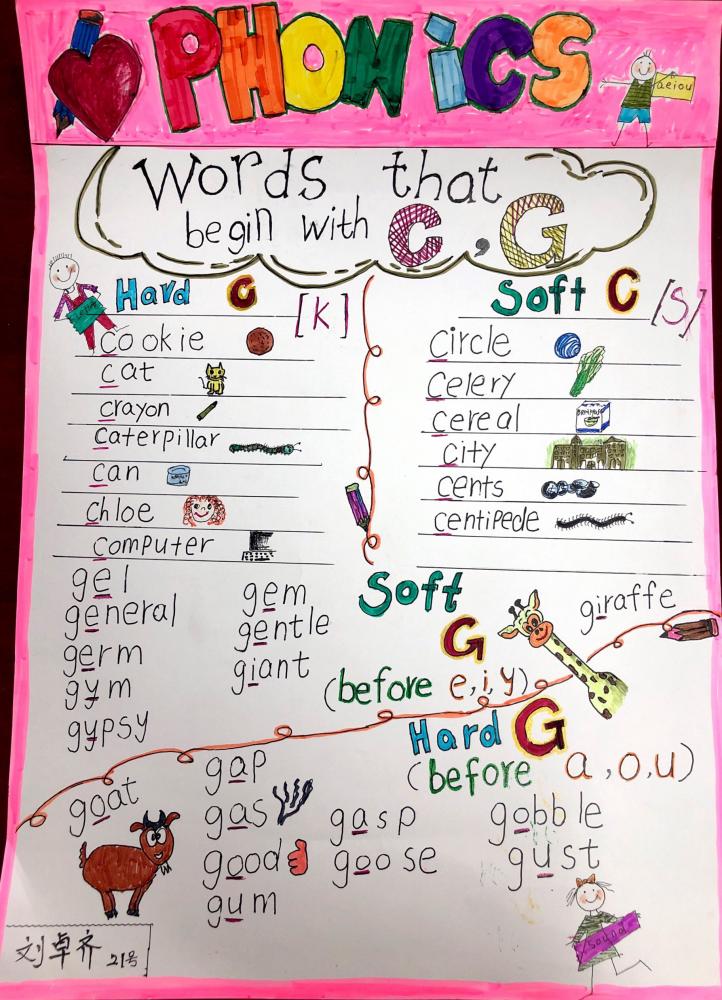 PHONiCS
aeiou
Words that
begin with C, G
Hard C [K]
cookie
cat
crayon
caterpillar
can
chloe
computer
Soft C [S]
circle
celery
cereal
city
cents
centipede
gel
general
germ
gym
gypsy
gem
gentle
giant
Soft
G
(before e, i, y)
giraffe
Hard G
(before a, o, u)
goat
gap
gas
good
gum
gasp
goose
gobble
gust
刘卓齐 21号